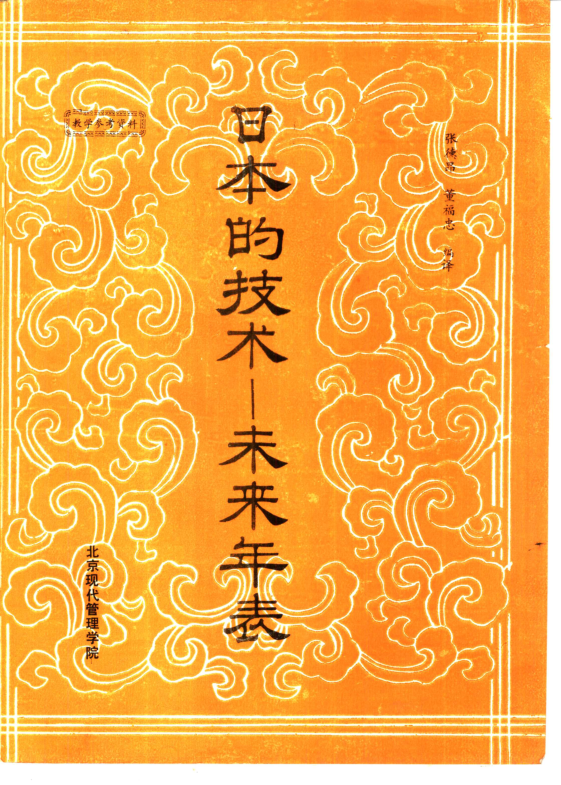 教学参考资料
日本的技术—未来年表
张德昂 董福忠 编译
北京现代管理学院